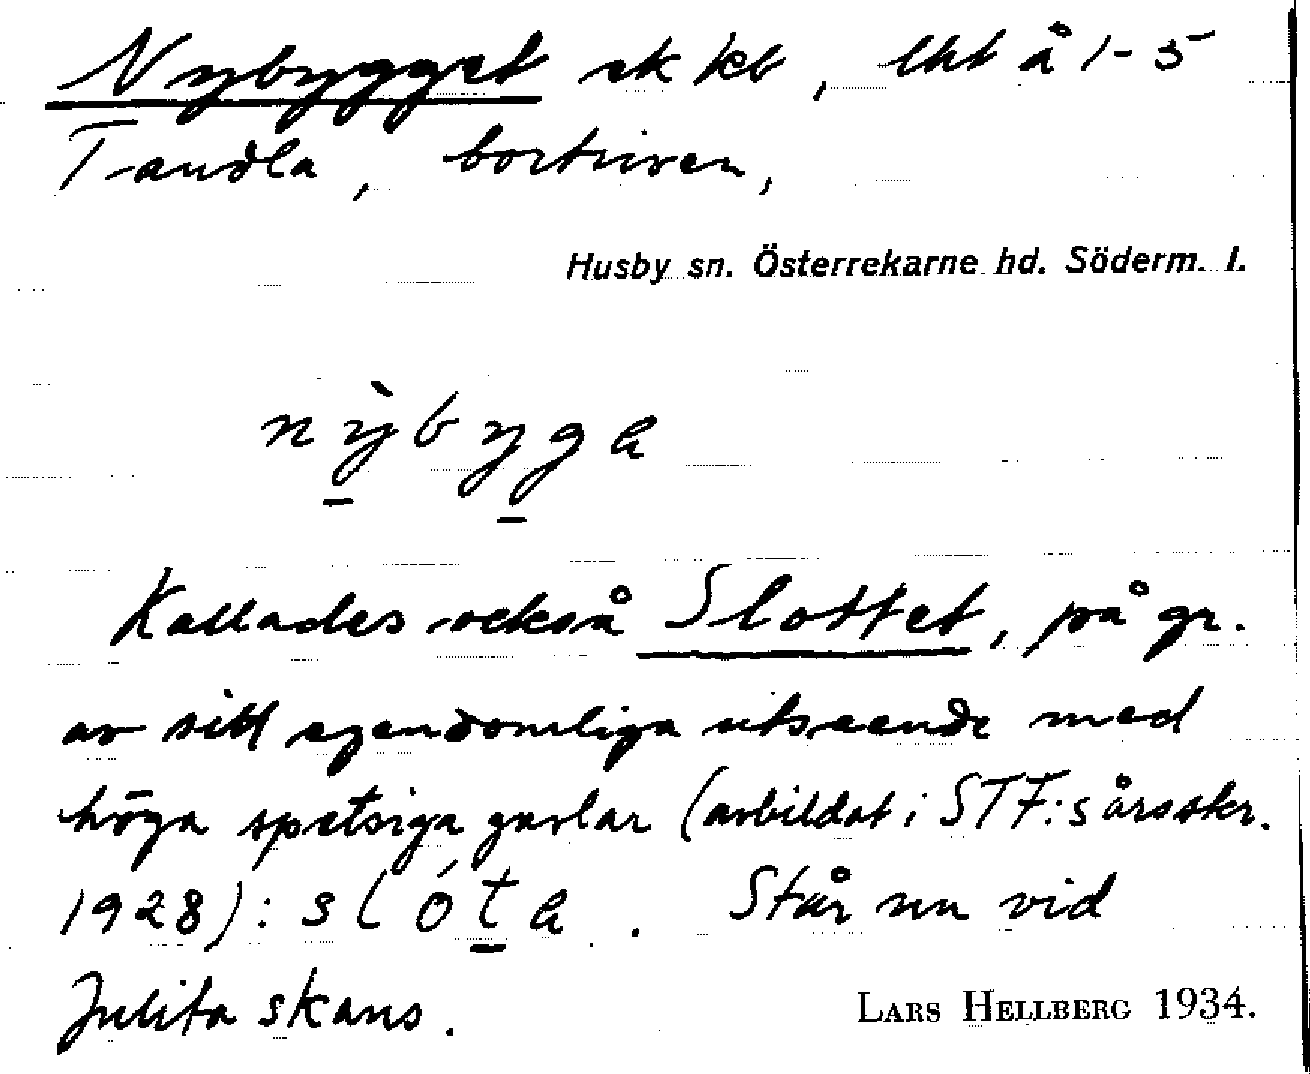 Nybygget ek kb, lht å 1-5
Tandla, bortriven,
Husby sn. Österrekarne hd. Söderm. l.
nỳbyga
Kallades också Slottet, på gr.
av sitt egendomliga utseende med
höga spetsiga gavlar (avbildat i STF:s årsskr.
1928): slóta. Står nu vid
Julita skans.
LARS HELLBERG 1934.